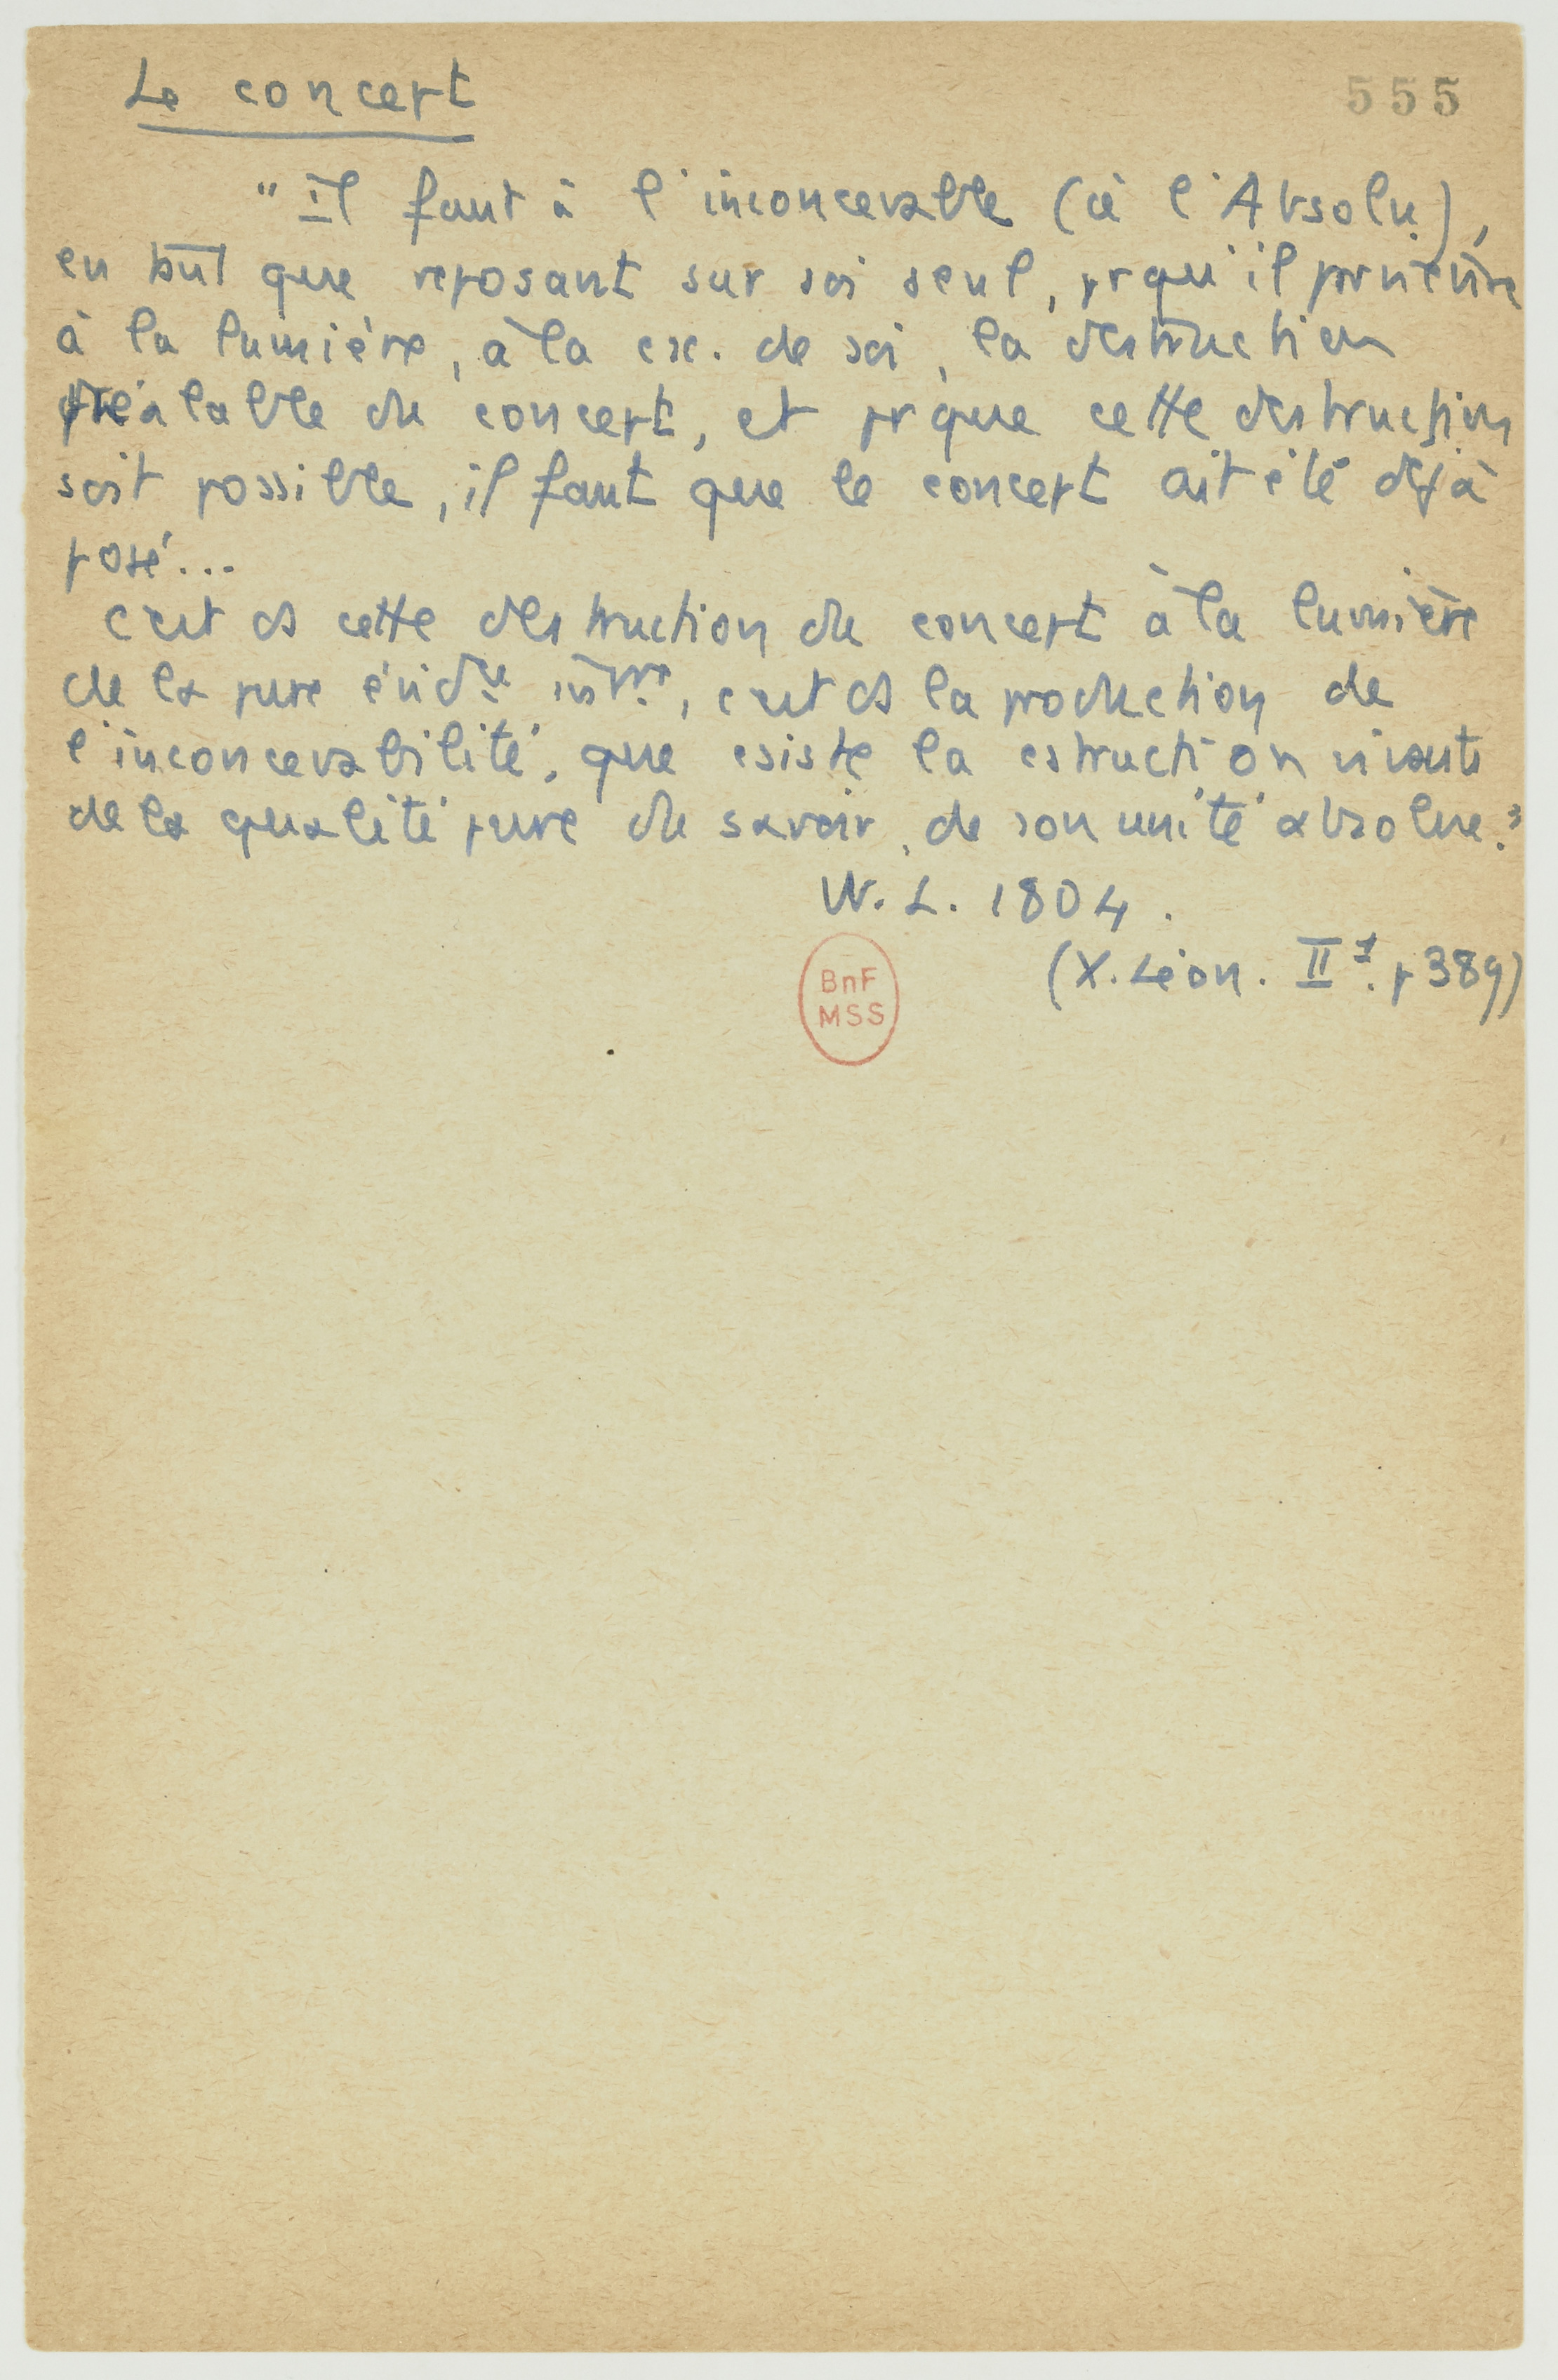 Le concept
555
"Il faut à l'inconcevable (à l'Absolu),
en tant que reposant sur soi seul, pr qu'il parvienne
à la lumière, à la cs. de soi, la destruction
préalable du concept, et pr que cette destruction
soit possible, il faut que le concept ait été déjà
posé...
C'est ds cette destruction du concept à la lumière
de la pure évidce, c'est ds la production de
l'inconcevabilité, que existe la cstruction vivante
de la qualité pure du savoir, de son unité absolue."
W. L. 1804.
(X. Léon. II 1. p 389)
BnF
MSS